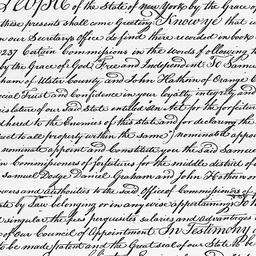 of the State of new York by the Grace of
these present shall come Greeting Know ye that w
our Secretarys office do find there recorded in book
237 Certain Commissions in the words following to
by the Grace of God, Free and Independent To Samu
ham of Ulster County and John Hathin of Orange C
ecial Trust and Confidence in your loyalty integrity and
gislature of our said State entitled "an Act for the forfeitur
adhered to the Enemies of this state and for declaring the
pect to all property within the same"] nominated appoi
nominate appoint and Constitute you the said Samue
in Commissioners of forfeitures for the middle district of
Samuel Dodge Daniel Graham and John Hathorn
owers and authorities to the said Office of Commissioners of
ate by law belonging or in any wise appertaining To h
singular the fees perquisites salaries and advantages
of our Council of Appointment In Testimony
to be made patent and the Great seal of our State to be